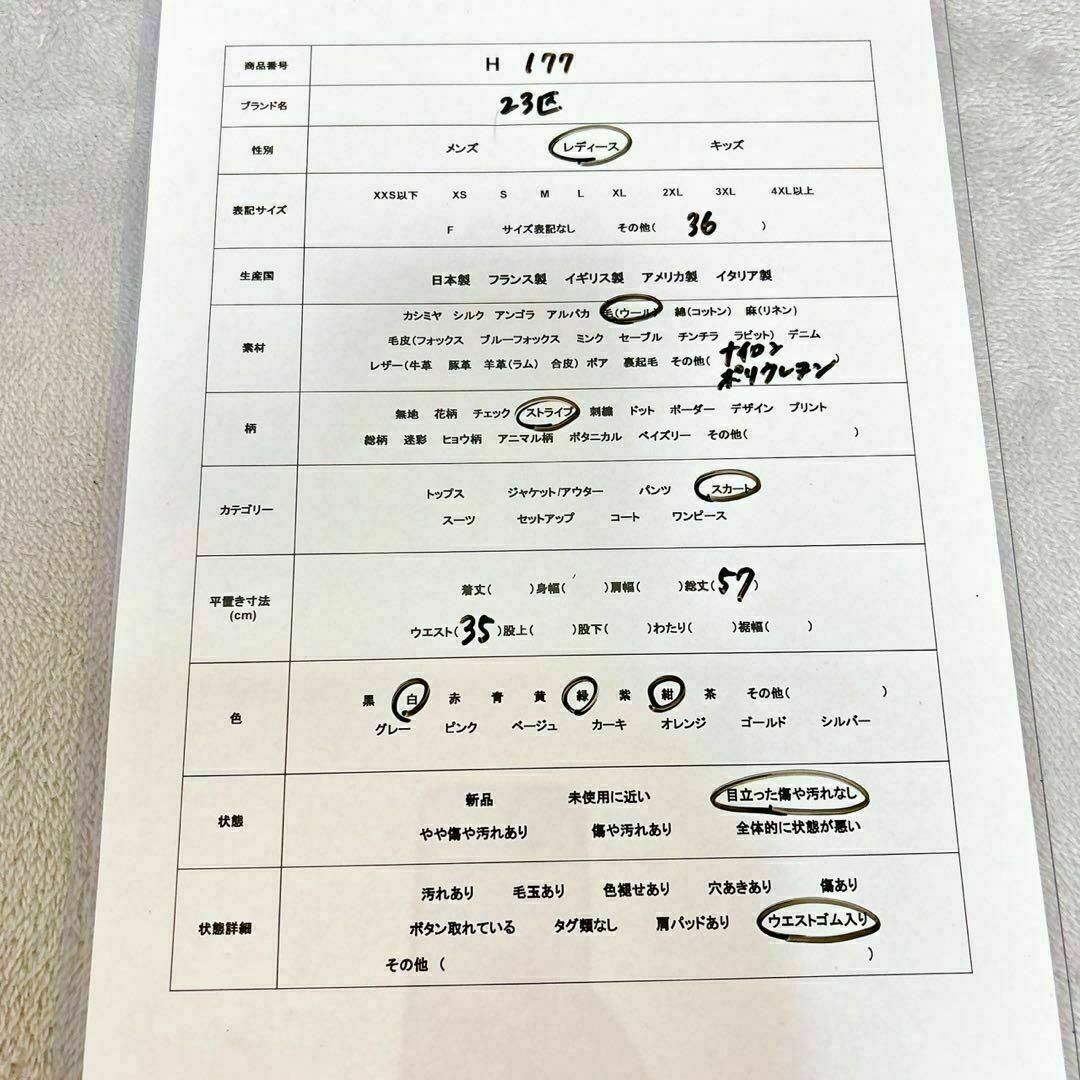 商品番号 H 177
ブランド名 23区
性別 メンズ レディース キッズ
表記サイズ
XXS以下 XS S M L XL 2XL 3XL 4XL以上
F サイズ表記なし その他( 36 )
生産国 日本製 フランス製 イギリス製 アメリカ製 イタリア製
素材
カシミヤ シルク アンゴラ アルパカ 毛(ウール) 綿(コットン) 麻(リネン)
毛皮(フォックス ブルーフォックス ミンク セーブル チンチラ ラビット) デニム
レザー(牛革 豚革 羊革(ラム) 合皮) ボア 裏起毛 その他( ナイロン )
ポリウレタン
柄
無地 花柄 チェック ストライプ 刺繍 ドット ボーダー デザイン プリント
総柄 迷彩 ヒョウ柄 アニマル柄 ボタニカル ペイズリー その他( )
カテゴリー
トップス ジャケット/アウター パンツ スカート
スーツ セットアップ コート ワンピース
平置き寸法
(cm)
着丈( )身幅( )肩幅( )総丈(57)
ウエスト(35)股上( )股下( )わたり( )裾幅( )
色
黒 白 赤 青 黄 緑 紫 紺 茶 その他( )
グレー ピンク ベージュ カーキ オレンジ ゴールド シルバー
状態
新品 未使用に近い 目立った傷や汚れなし
やや傷や汚れあり 傷や汚れあり 全体的に状態が悪い
状態詳細
汚れあり 毛玉あり 色褪せあり 穴あきあり 傷あり
ボタン取れている タグ類なし 肩パッドあり ウエストゴム入り
その他 ( )